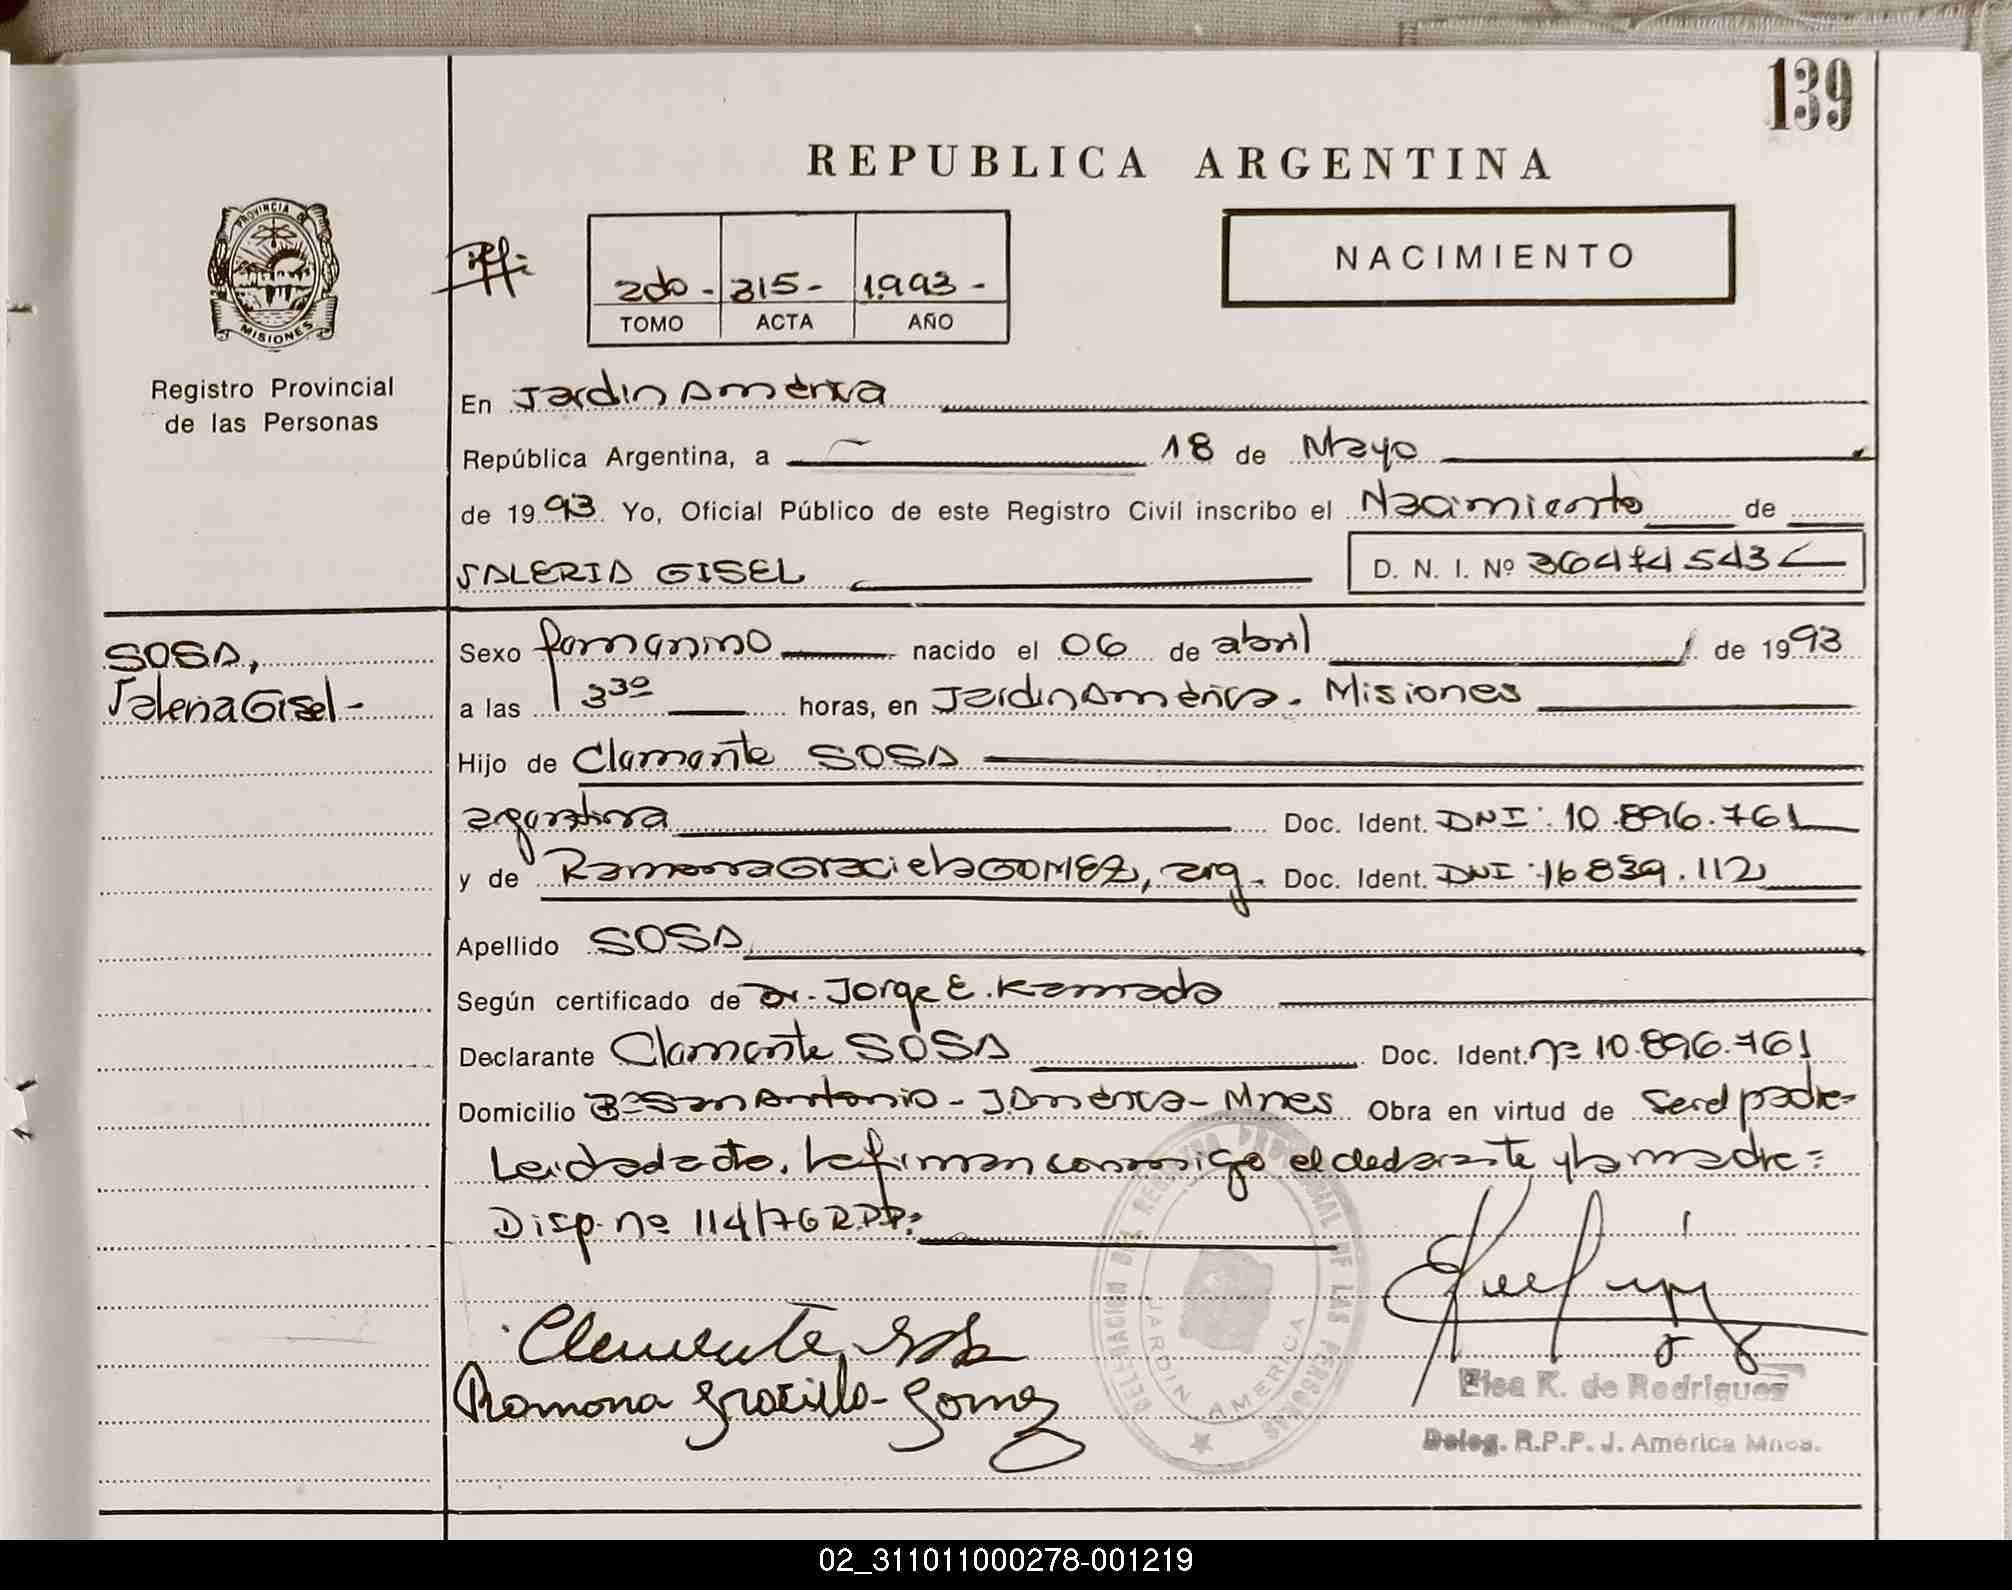 139
REPUBLICA ARGENTINA
PROVINCIA DE
MISIONES
Registro Provincial
de las Personas
2do - 315 - 1.993 -
TOMO ACTA AÑO
NACIMIENTO
En Jardin América
República Argentina, a 18 de Mayo
de 1993 Yo, Oficial Público de este Registro Civil inscribo el Nacimiento de
VALERIA GISEL D. N. I. Nº 36474543
SOSA,
Valeria Gisel -
Sexo femenino nacido el 06 de abril de 1993
a las 3 30 horas, en Jardin América. Misiones
Hijo de Clemente SOSA
argentina Doc. Ident. DNI: 10.896.761
y de Ramona Graciela GOMEZ, arg. Doc. Ident. DNI: 16.839.112
Apellido SOSA
Según certificado de Dr. Jorge E. Kamada
Declarante Clemente SOSA Doc. Ident. nº 10.896.761
Domicilio Bº San Antonio - J. América - Mnes Obra en virtud de ser el padre-
Leida el acta, la firman conmigo el declarante y la madre=
Disp. nº 114/76 R.P.P.=
Clemente Sosa
Ramona Graciela Gomez
DELEGACION DEL REGISTRO PROVINCIAL DE LAS PERSONAS
JARDIN AMERICA
Elsa K. de Rodriguez
Deleg. R.P.P. J. América Mnes.
02_311011000278-001219